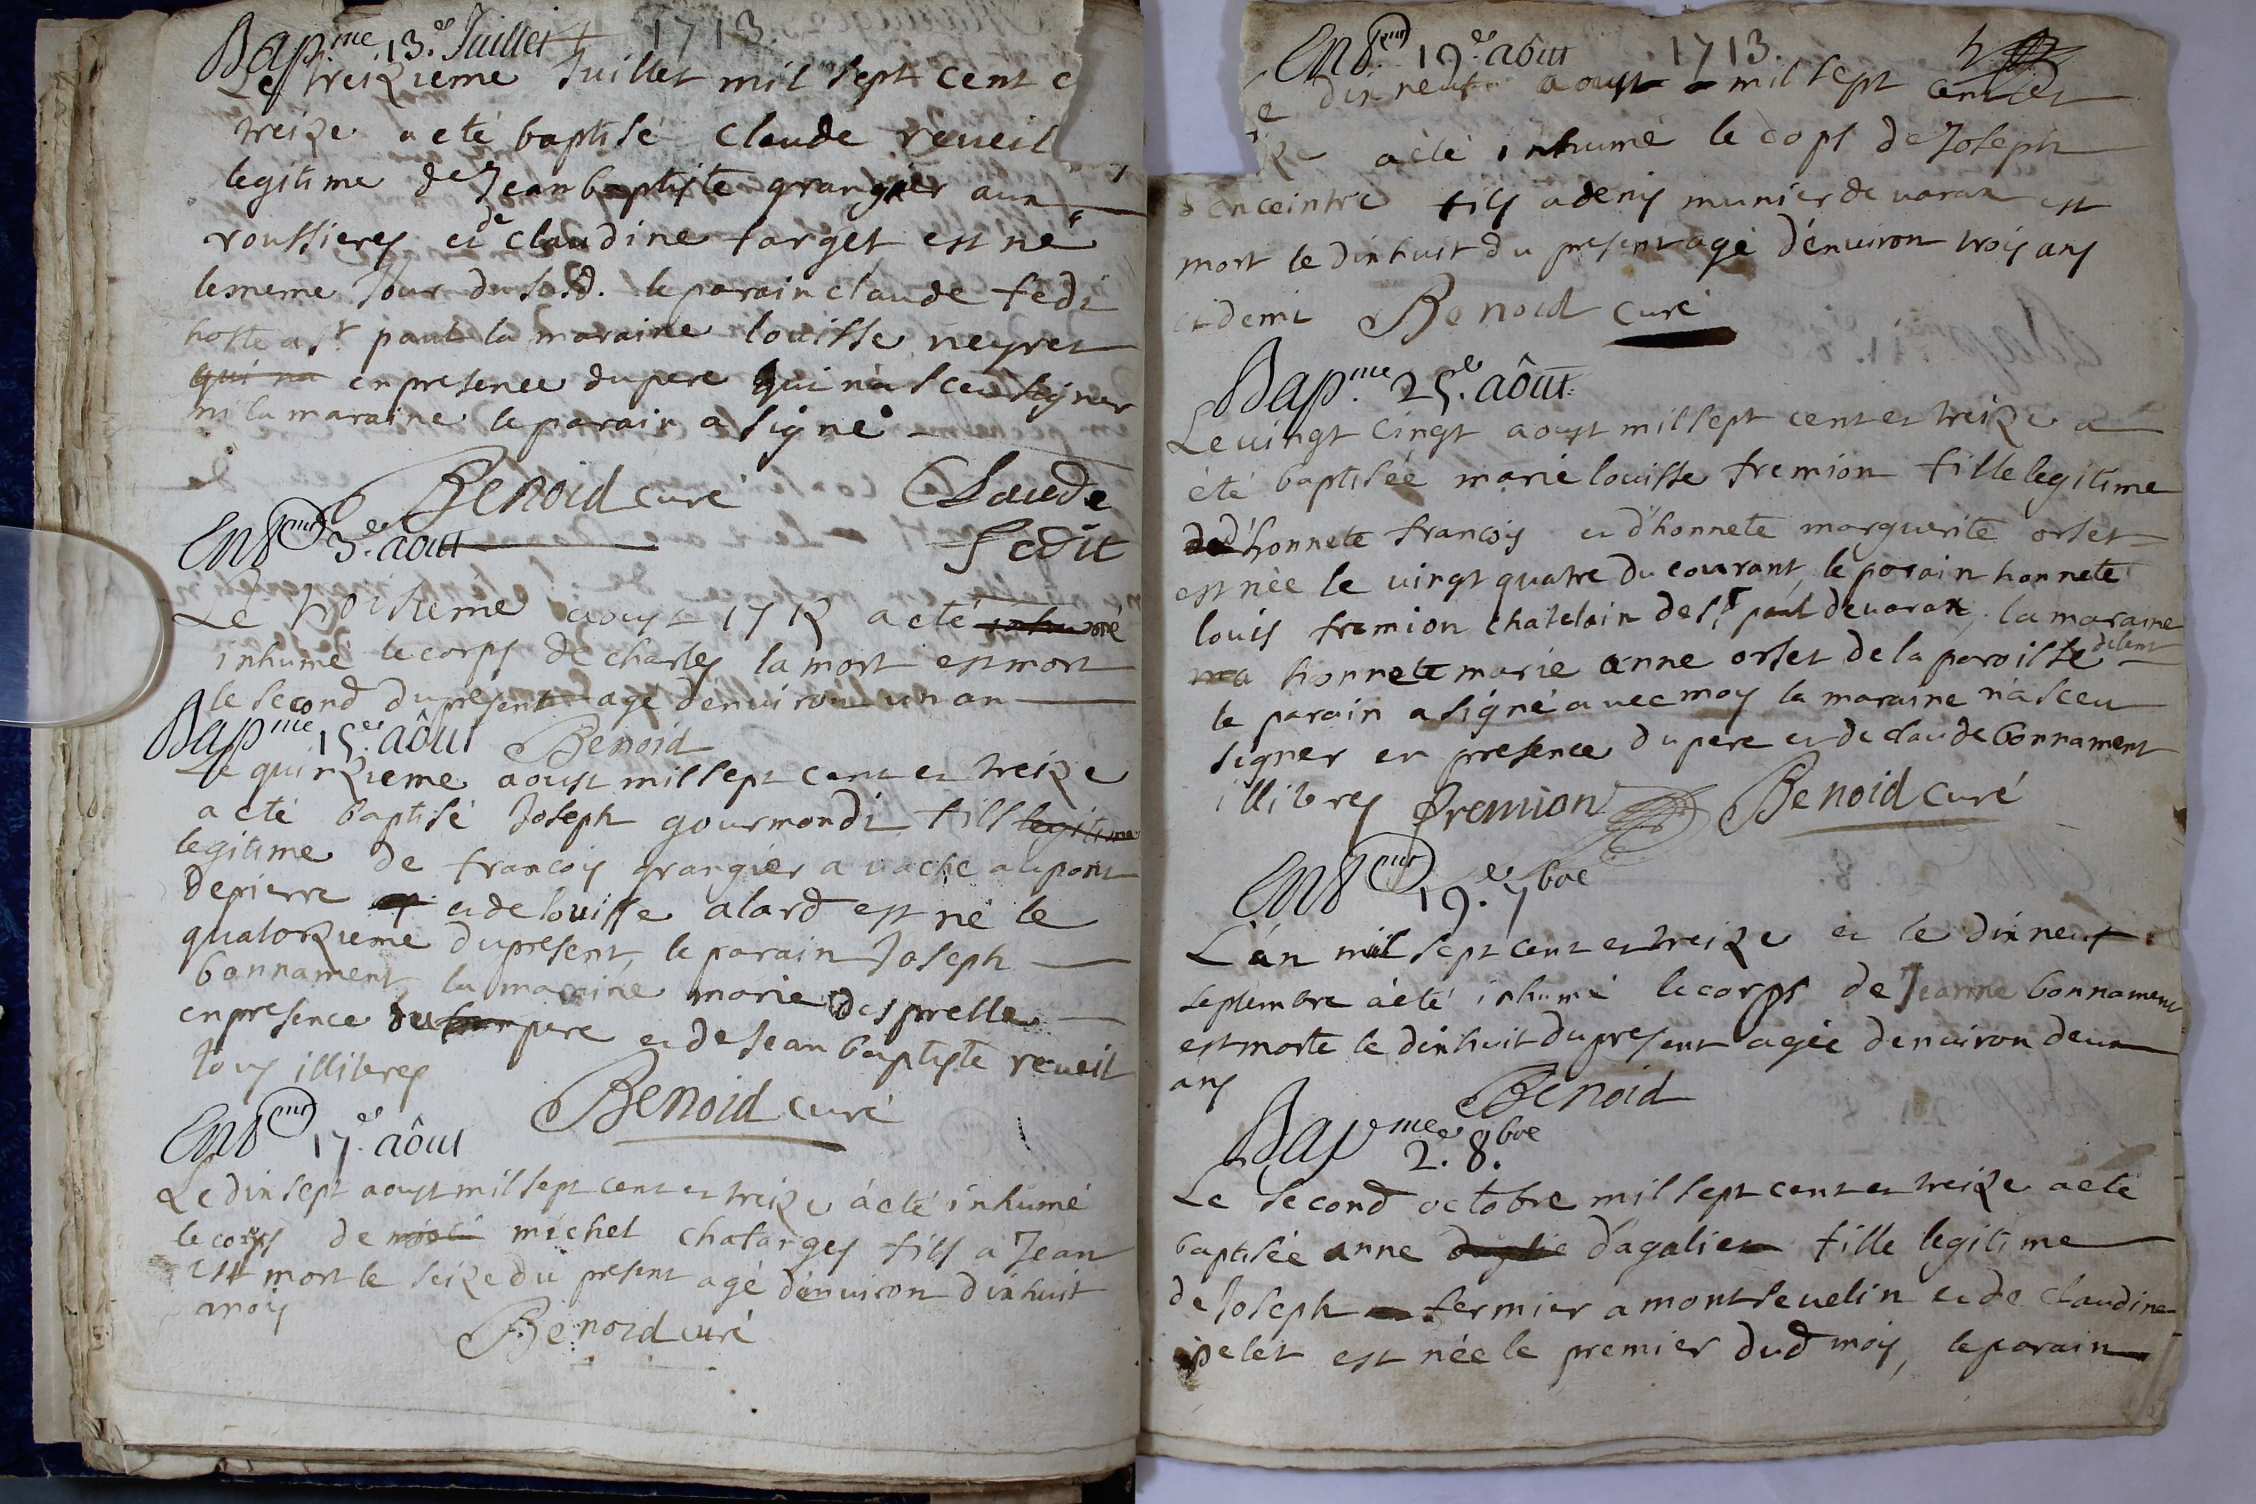 Bap.me 13.e Juillet 1713.
Le treizieme Juillet mil sept cent e
treize a eté baptisé Claude reveil
legitime de Jean baptiste grangier aux
roussieres et de claudine farget est né
le meme Jour du susd. le parain claude fedi
hoste a St paul la maraine louisse neyret
qui na en presence du pere qui n'a sceu signer
ni la maraine le parain a signé
Benoid curé Claude
fedit
Ent.mt 3.e août
Le troisieme aoust 1713 a eté inhumé
inhumé le corps de charles la mort est mort
le second du present agé d'environ un an
Benoid
Bap.me 15.e août
Le quinzieme aoust mil sept cent et treize
a eté baptisé Joseph gourmondi fils legitime
legitime de francois grangier a vache au pont
de pierre et de louisse alard est né le
quatorzieme du present, le parain Joseph
bonnament, la maraine marie desprelle
en presence du pere et de Jean baptiste reveil
tous illiteres
Benoid curé
Ent.mt 17.e août
Le dix sept aoust mil sept cent et treize a eté inhumé
le corps de michel chatarges fils a Jean
est mort le seize du present agé d'environ dix huit
mois
Benoid curé
Ent.mt 19.e août 1713.
e dix neuf aoust mil sept cent et
ze a eté inhumé le cops de Joseph
enceintre fils a denis munier de varax est
mort le dix huit du present agé d'environ trois ans
et demi Benoid curé
Bap.me 25.e août.
Le vingt cingt aoust mil sept cent et treize a
eté baptisée marie louisse fremion fille legitime
d'honnete francois et d'honnete marguerite orset
est née le vingt quatre du courant, le parain honnete
louis fremion chatelain de St paul de varax, la maraine
ma honnete marie anne orset de la paroisse
le parain a signé avec moy la maraine n'a sceu
signer en presence du pere et de claude bonnament
illiteres fremion Benoid curé
Ent.mt 19.e 7bre
L'an mil sept cent et treize et le dix neuf
septembre a eté inhumé le corps de Jeanne bonnament
est morte le dix huit du present agée denviron deux
ans Benoid
Bap.me 2.e 8.bre
Le second octobre mil sept cent et treize a eté
baptisée anne d'agalier fille legitime
de Joseph fermier a montsevelin et de claudine
pelet est née le premier dud mois, le parain